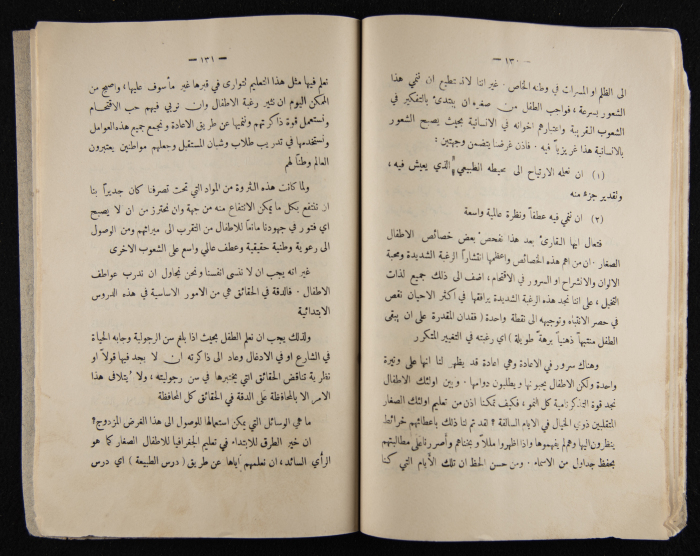 — ١٣٠ —
الى الظلم او المسرات في وطنه الخاص . غير اننا لا نستطيع ان ننمي هذا
الشعور بسرعة ، فواجب الطفل من صغره ان يبتدىء بالتفكير في
الشعوب القريبة واعتبارهم اخوانه في الانسانية بحيث يصبح الشعور
بالانسانية هذا غريزياً فيه . فاذن غرضنا يتضمن وجهتين :
(١) ان نعلمه الارتياح الى محيطه الطبيعي الذي يعيش فيه ،
وتقدير جزء منه
(٢) ان ننمي فيه عطفاً ونظرة عالمية واسعة
فتعال ايها القارىء بعد هذا نفحص بعض خصائص الاطفال
الصغار . ان من اهم هذه الخصائص واعظمها انتشاراً الرغبة الشديدة ومحبة
الالوان والانشراح او السرور في الاقتحام ، اضف الى ذلك جميع لذات
التخيل ، على اننا نجد هذه الرغبة الشديدة يرافقها في اكثر الاحيان نقص
في حصر الانتباه وتوجيهه الى نقطة واحدة ( فقدان المقدرة على ان يبقى
الطفل منتبهاً ذهنياً برهة طويلة ) اي رغبته في التغيير المتكرر
وهناك سرور في الاعادة وهي اعادة قد يظهر لنا انها على وتيرة
واحدة ولكن الاطفال يحبونها ويطلبون دوامها . وبين اولئك الاطفال
نجد قوة الذاكرة نامية كل النمو ، فكيف تمكنا اذن من تعليم اولئك الصغار
المتقلبين ذوي الخيال في الايام السالفة ؟ لقد تم لنا ذلك باعطائهم خرائط
ينظرون اليها وهم لم يفهموها واذا اظهروا مللاً وبخناهم وأصررنا على مطالبتهم
بحفظ جداول من الاسماء . ومن حسن الحظ ان تلك الأيام التي كنا
— ١٣١ —
نعلم فيها مثل هذا التعليم لتوارى في قبرها غير مأسوف عليها ، واصبح من
الممكن اليوم ان نثير رغبة الاطفال وان نربي فيهم حب الاقتحام
ونستعمل قوة ذاكرتهم وننميها عن طريق الاعادة ونجمع جميع هذه العوامل
ونستخدمها في تدريب طلاب وشبان المستقبل وجعلهم مواطنين يعتبرون
العالم وطناً لهم
ولما كانت هذه الثروة من المواد التي تحت تصرفنا كان جديراً بنا
ان ننتفع بكل ما يمكن الانتفاع منه من جهة وان نحترز من ان لا يصبح
اي فتور في جهودنا مانعاً للاطفال من التقرب الى ميراثهم ومن الوصول
الى رعوية وطنية حقيقية وعطف عالي واسع على الشعوب الاخرى
غير انه يجب ان لا ننسى انفسنا ونحن نحاول ان ندرب عواطف
الاطفال . فالدقة في الحقائق هي من الامور الاساسية في هذه الدروس
الابتدائية
ولذلك يجب ان نعلم الطفل بحيث اذا بلغ سن الرجولية وجابه الحياة
في الشارع او في الادغال وعاد الى ذاكرته ان لا يجد فيها قولاً او
نظرية تناقض الحقائق التي يختبرها في سن رجوليته ، ولا يتلافى هذا
الامر الا بالمحافظة على الدقة في الحقائق كل المحافظة
ما هي الوسائل التي يمكن استعمالها للوصول الى هذا الغرض المزدوج؟
ان خير الطرق للابتداء في تعليم الجغرافيا للاطفال الصغار كما هو
الرأي السائد ، ان نعلمهم اياها عن طريق ( درس الطبيعة ) اي درس